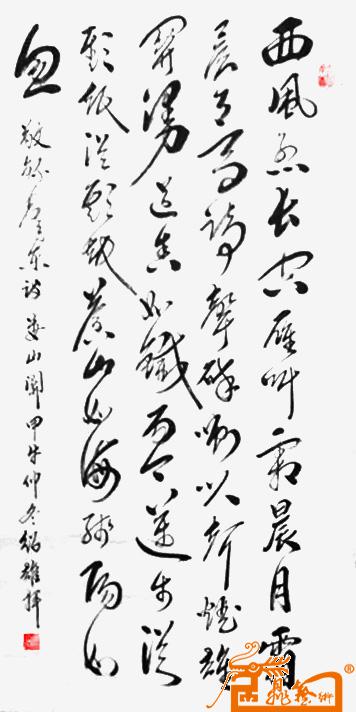 西風烈长空雁叫霜晨月霜
晨月马蹄聲碎喇叭声咽雄
關漫道真如鐵而今邁步従
頭越従頭越蒼山如海殘陽如
血
敬錄毛澤東詩婁山關甲午仲冬紹雄揮